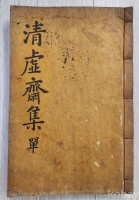 清虛齋集
單